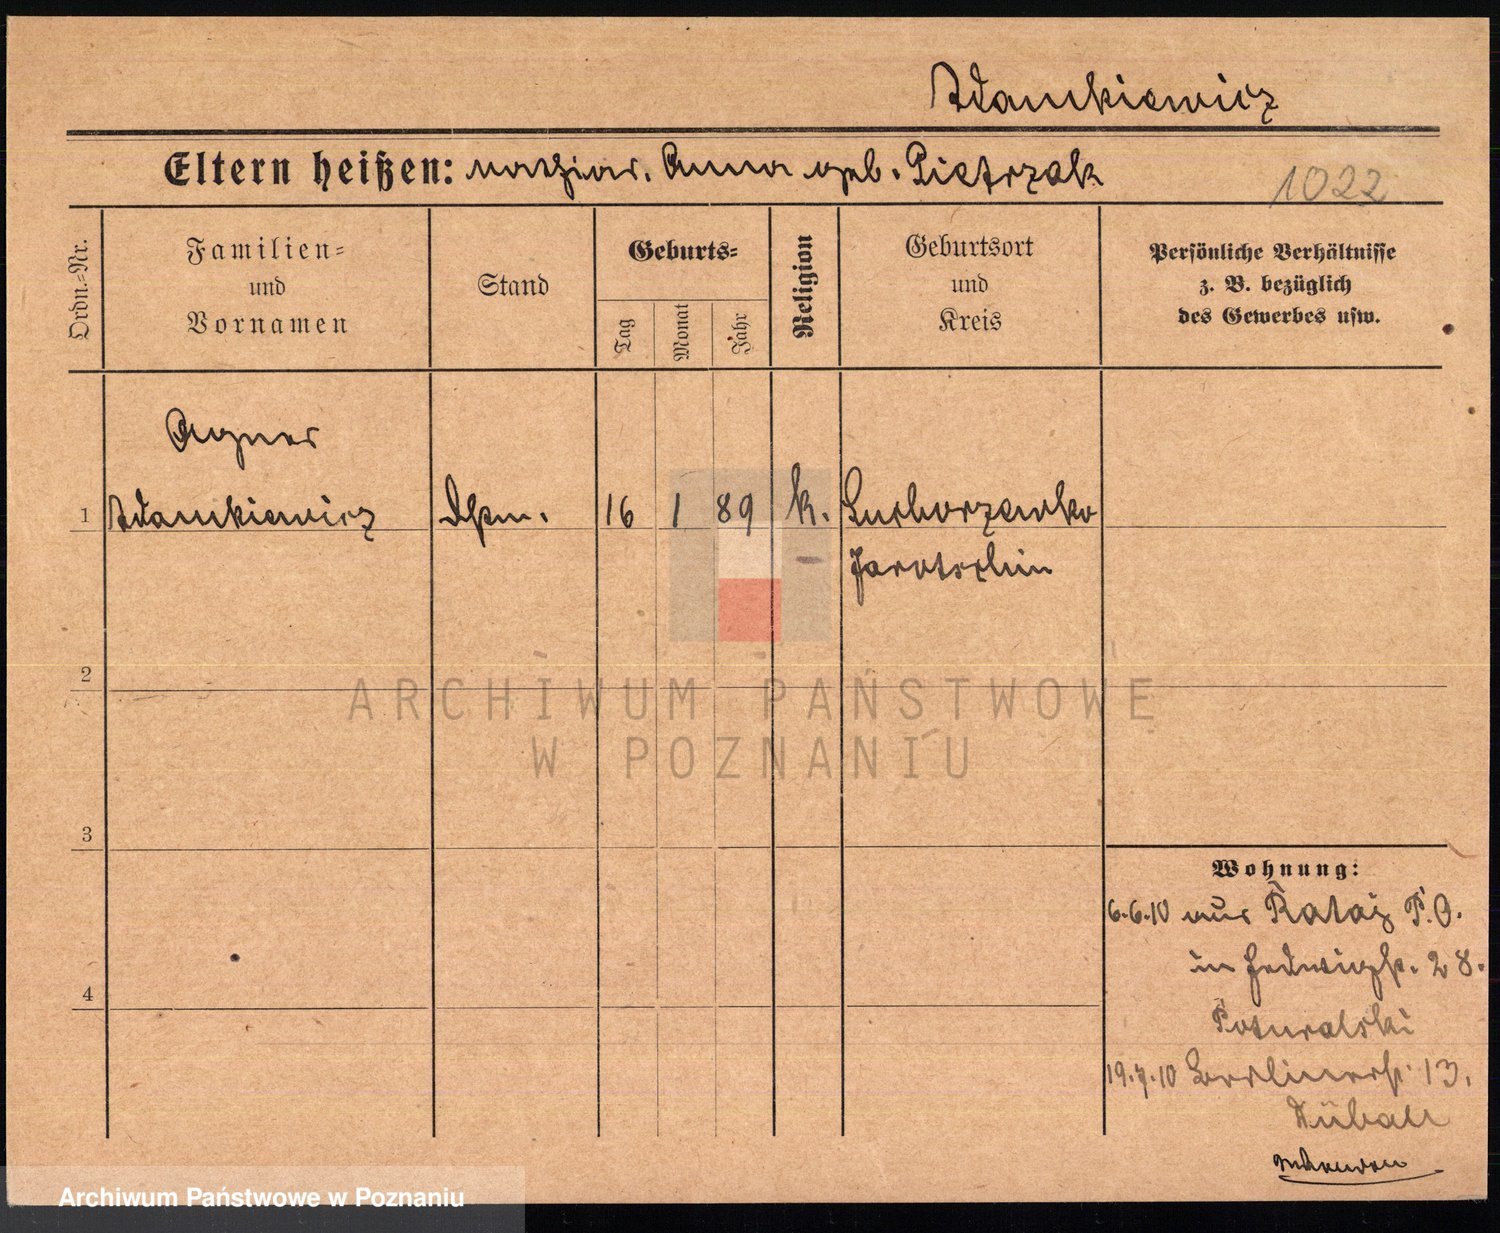 Adamkiewicz
Eltern heißen: Anna geb. Pietrzak
1022
Ordn.-Nr.
Familien-
und
Vornamen
Stand
Geburts-
Tag
Monat
Jahr
Religion
Geburtsort
und
Kreis
Persönliche Verhältnisse
z. B. bezüglich
des Gewerbes usw.
Agnes
1 Adamkiewicz Dstm. 16 1 89 k. Suchorzewko
Jarotschin
2
3
4
Wohnung:
6.6.10 aus Rataj P.O.
in Hedwigstr. 28.
Poturalski
19.7.10 Berlinerstr. 13.
ARCHIWUM PAŃSTWOWE
W POZNANIU
Archiwum Państwowe w Poznaniu